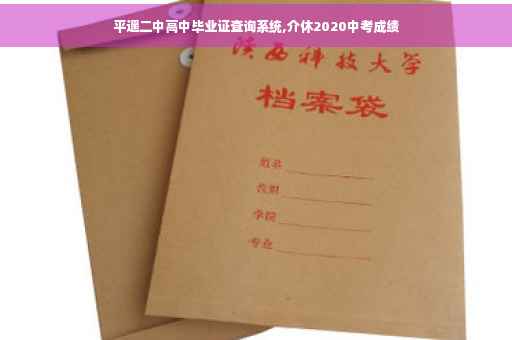 平遥二中高中毕业证查询系统,介休2020中考成绩
陕西科技大学
档案袋
姓名
学院
专业